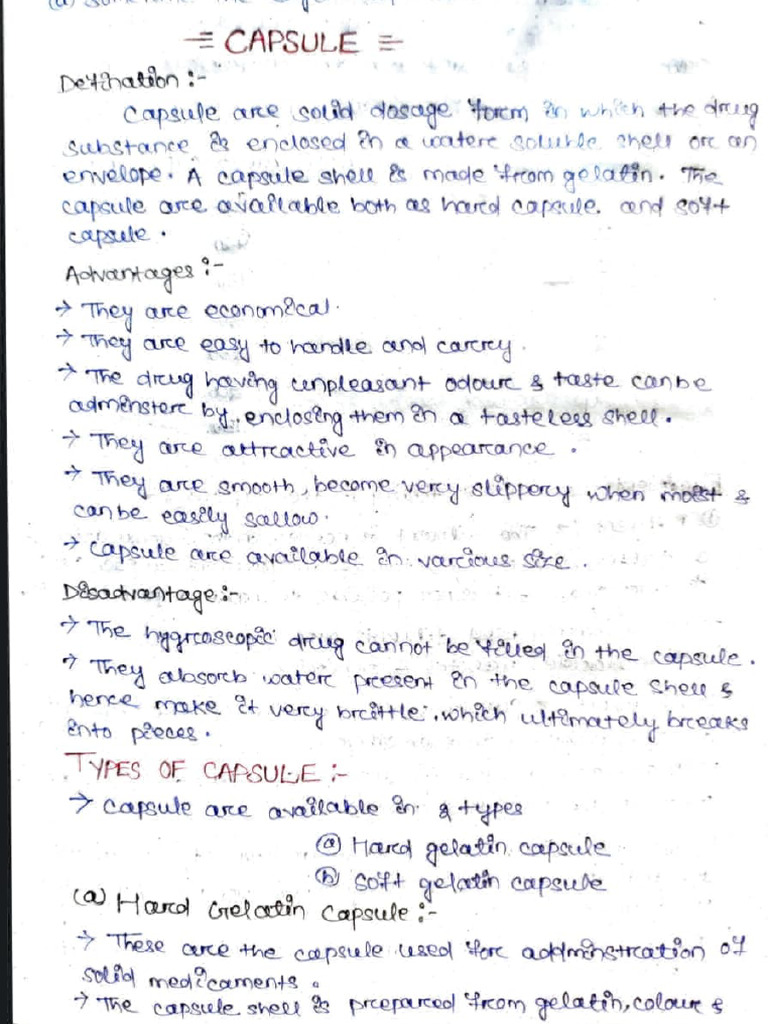 CAPSULE
Defination :-
Capsule are solid dosage form in which the drug
substance is enclosed in a water soluble shell or an
envelope. A capsule shell is made from gelatin. The
capsule are available both as hard capsule. and soft
capsule.
Advantages :-
→ They are economical.
→ They are easy to handle and carry.
→ The drug having unpleasant odour & taste can be
adminster by, enclosing them in a tasteless shell.
→ They are attractive in appearance.
→ They are smooth, become very slippery when moist &
can be easily sallow.
→ Capsule are available in various size.
Disadvantage :-
→ The hygroscopic drug cannot be filled in the capsule.
→ They absorb water present in the capsule shell &
hence make it very brittle, which ultimately breaks
into pieces.
TYPES OF CAPSULE :-
→ Capsule are available in 2 types
(a) Hard gelatin capsule
(b) Soft gelatin capsule
(a) Hard Gelatin Capsule :-
→ These are the capsule used for addminstration of
solid medicaments.
→ The capsule shell is prepared from gelatin, colour &